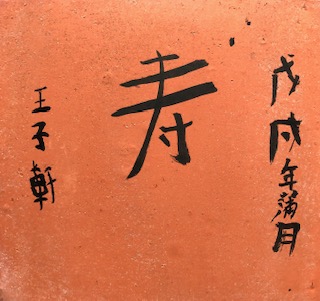 戊戌年蒲月
寿
王子軒